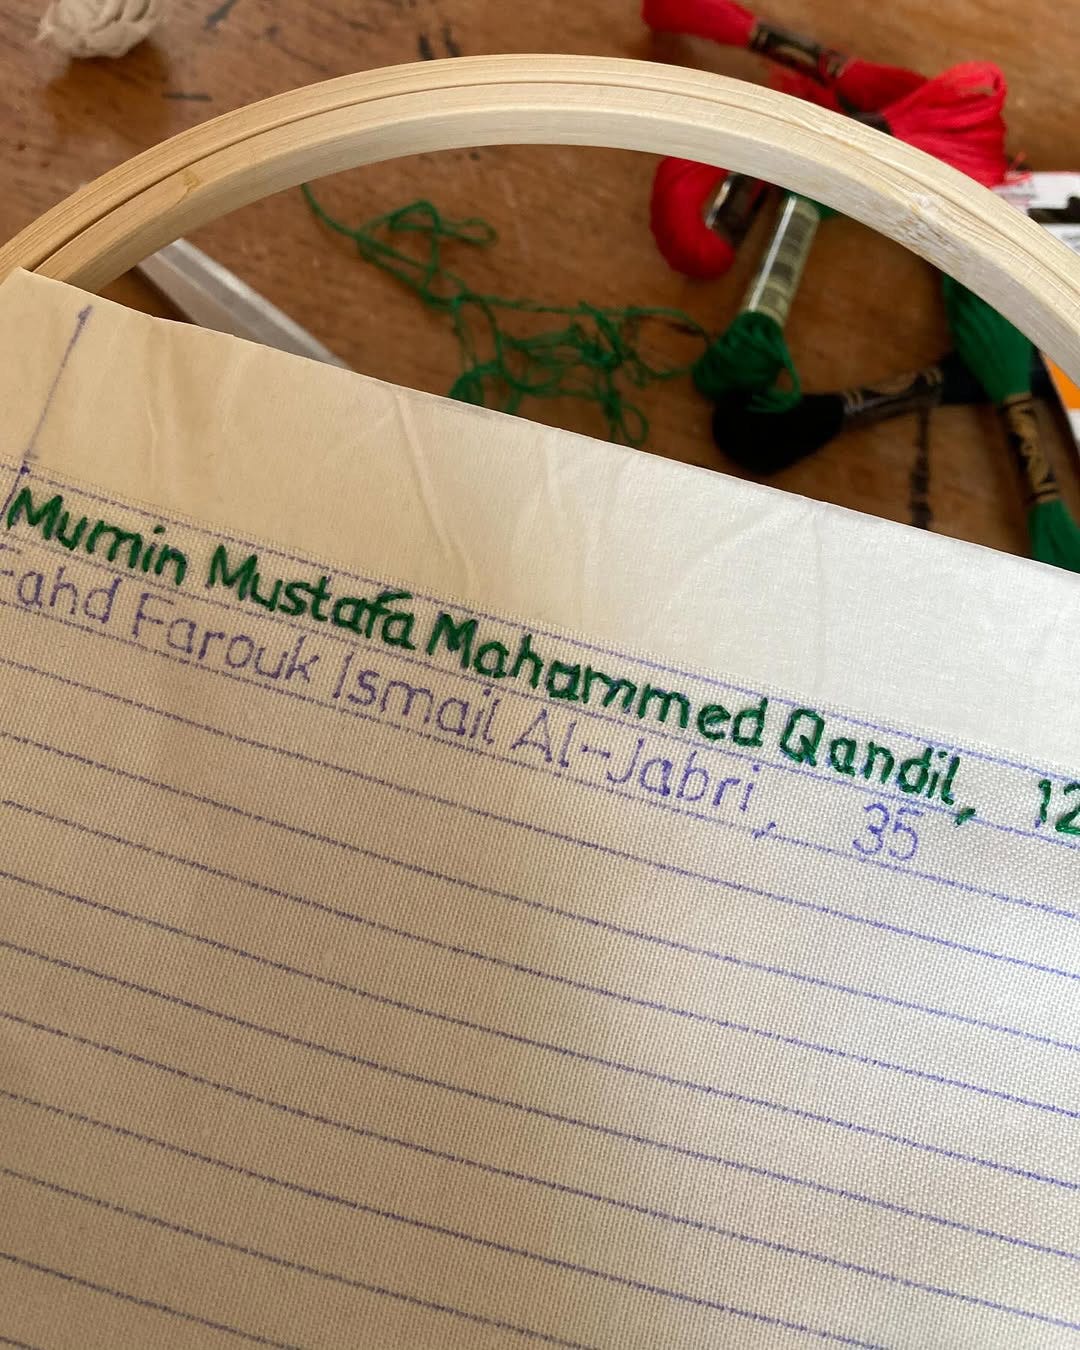 Mumin Mustafa Mohammed Qandil, 12
Fahd Farouk Ismail Al-Jabri, 35